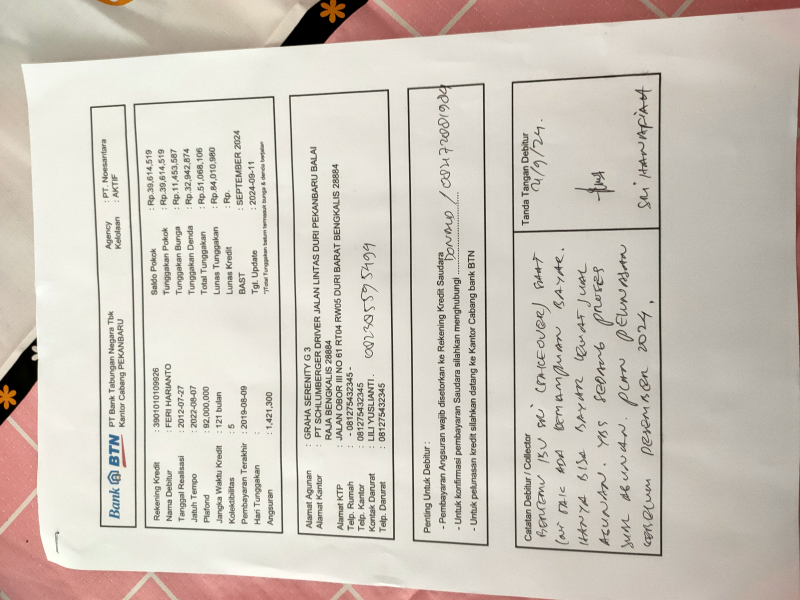 Bank BTN
PT Bank Tabungan Negara Tbk
Kantor Cabang PEKANBARU
Agency : PT. Noesantara
Kelolaan : AKTIF
Rekening Kredit : 3901010109926
Nama Debitur : FERI HARIANTO
Tanggal Realisasi : 2012-07-27
Jatuh Tempo : 2022-08-07
Plafond : 92,000,000
Jangka Waktu Kredit : 121 bulan
Kolektibilitas : 5
Pembayaran Terakhir : 2019-08-09
Hari Tunggakan :
Angsuran : 1,421,300
Saldo Pokok : Rp.39,614,519
Tunggakan Pokok : Rp.39,614,519
Tunggakan Bunga : Rp.11,453,587
Tunggakan Denda : Rp.32,942,874
Total Tunggakan : Rp.51,068,106
Lunas Tunggakan : Rp.84,010,980
Lunas Kredit : Rp.
BAST : SEPTEMBER 2024
Tgl. Update : 2024-09-11
*Total Tunggakan belum termasuk bunga & denda berjalan
Alamat Agunan : GRAHA SERENITY G 3
Alamat Kantor : PT SCHLUMBERGER DRIVER JALAN LINTAS DURI PEKANBARU BALAI
RAJA BENGKALIS 28884
Alamat KTP : JALAN OBOR III NO 61 RT04 RW05 DURI BARAT BENGKALIS 28884
Telp. Rumah : - 081275432345 -
Telp. Kantor : 081275432345
Kontak Darurat : LILI YUSLIANTI .
Telp. Darurat : 081275432345
Penting Untuk Debitur :
- Pembayaran Angsuran wajib disetorkan ke Rekening Kredit Saudara
- Untuk konfirmasi pembayaran Saudara silahkan menghubungi
- Untuk pelunasan kredit silahkan datang ke Kantor Cabang bank BTN
Catatan Debitur / Collector
BERTEMU IBU SRI (TAKEOVER) SAAT
INI TAK ADA KEMAMPUAN BAYAR.
HANYA BISA BAYAR LEWAT JUAL
AGUNAN. YBS SEDANG PROSES
JUAL AGUNAN PLAN PELUNASAN
SEBELUM DESEMBER 2024.
Tanda Tangan Debitur
SRI HANAFIAH